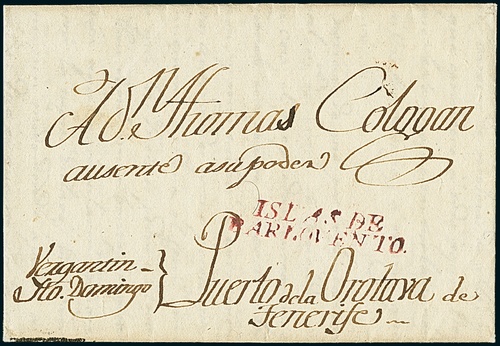 A dn. Thomas Cologan
ausente a su poder
ISLAS DE
BARLOVENTO.
Vergantin
Sto. Domingo
Puerto de la Orotava de
Tenerife